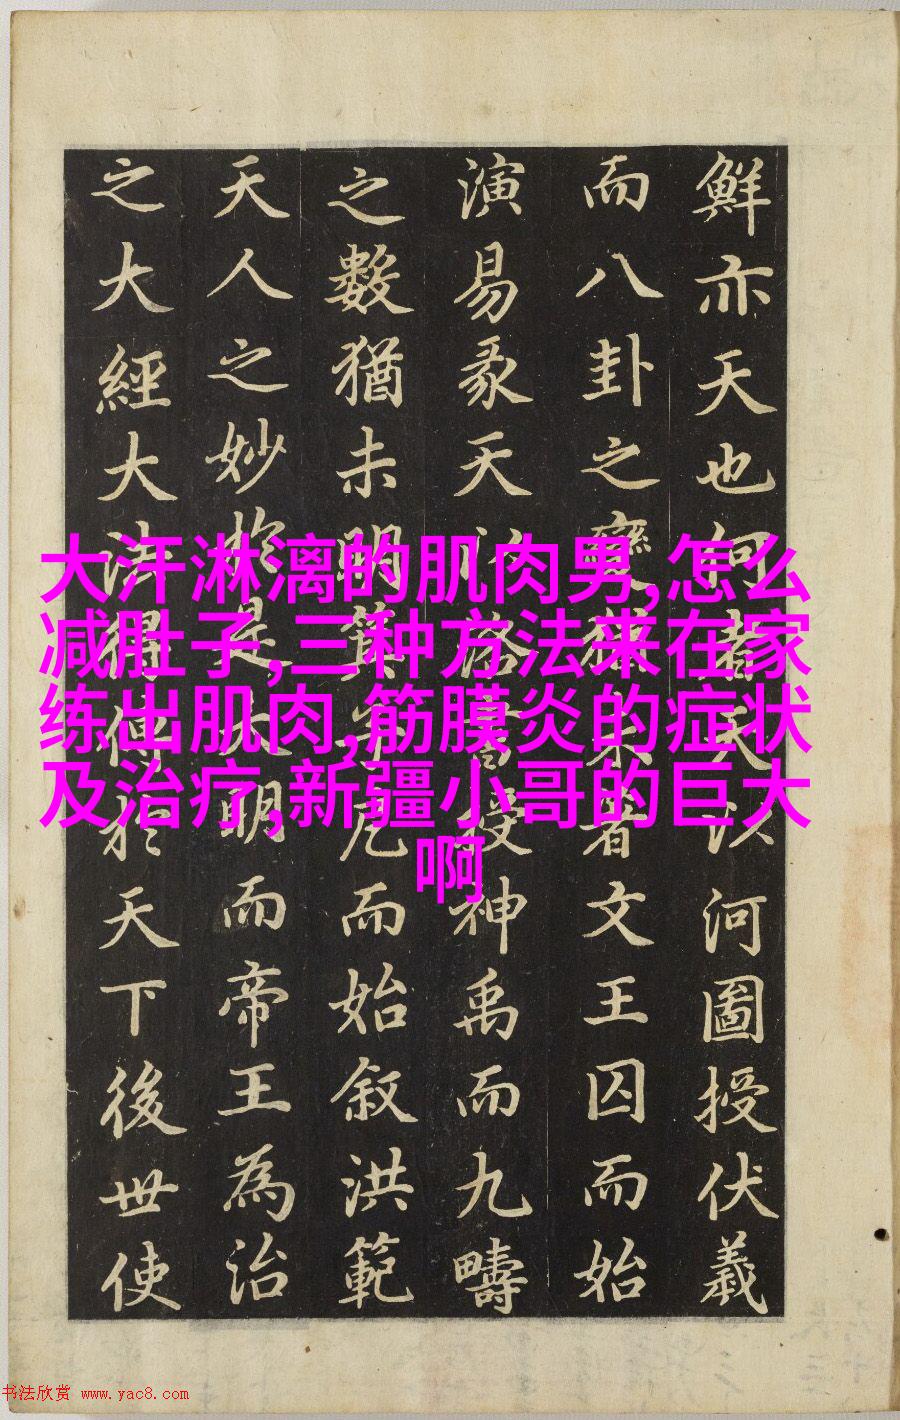 鮮亦天也何者天以河圖授伏羲
而八卦之變未者文王囚而始
演易彖天以洛書授神禹而九疇
之數猶未明箕子厄而始叙洪範
天人之妙於是大明而帝王為治
之大經大法得傳於天下後世使
大汗淋漓的肌肉男,怎么
减肚子,三种方法来在家
练出肌肉,筋膜炎的症状
及治疗,新疆小哥的巨大
啊
书法欣赏 www.yac8.com